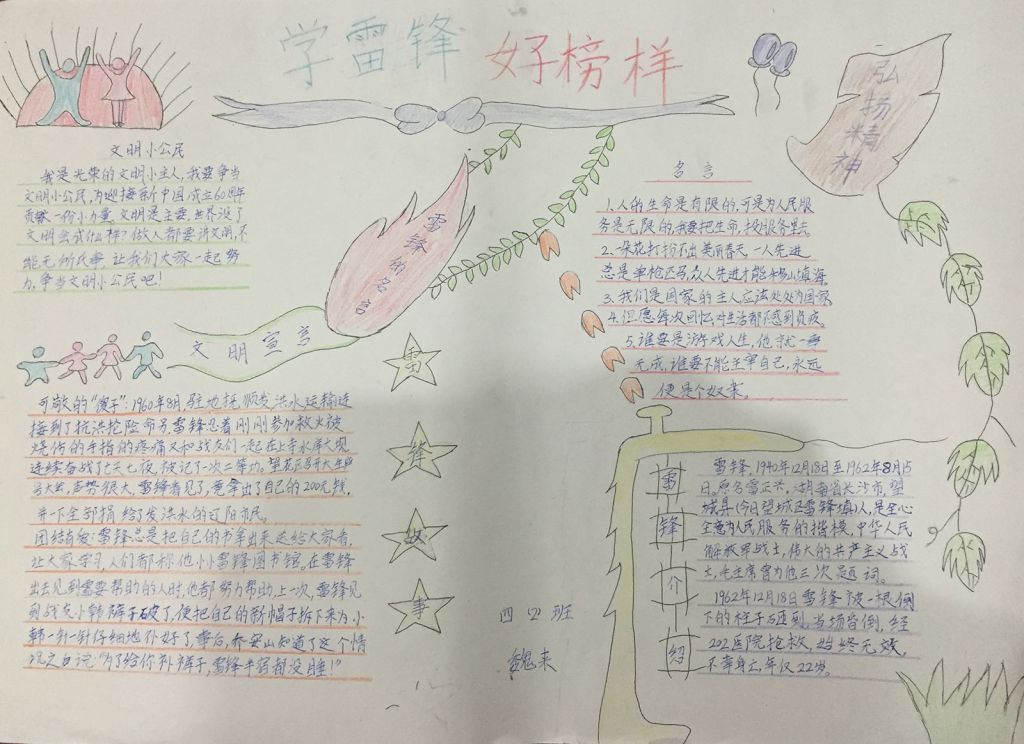 学雷锋 好榜样
弘扬精神
文明小公民
我是光荣的文明小主人,我要争当
文明小公民,为迎接新中国成立60周年
贡献一份小力量,文明是主要,世界没了
文明会成什么样?做人都要讲文明,不
能无所民事,让我们大家一起努
力,争当文明小公民吧!
雷锋的名言
名言
1.人的生命是有限的,可是为人民服
务是无限的,我要把生命,投服务里去
2.一朵花打扮不出美丽春天,一人先进
总是单枪匹马,众人先进才能移山填海
3.我们是国家的主人应该处处为国家
4.但愿每次回忆,对生活都不感到负疚
5.谁要是游戏人生,他就一事
无成,谁要不能主宰自己,永远
便是个奴隶。
文明宣言
可敬的“傻子”:1960年8月,驻地抚顺发洪水,运输连
接到了抗洪抢险命令.雷锋忍着刚刚参加救火被
烧伤的手指的疼痛又和战友们一起在上寺水库大堤
连续奋战了七天七夜,被记了一次二等功。望花区召开大生产
号大会,声势很大,雷锋看见了,竟拿出了自己的200元钱,
并一下全部捐给了发洪水的辽阳市民。
团结友爱:雷锋总是把自己的书拿出来送给大家看,
让大家学习,人们都称他小小雷锋图书馆。在雷锋
出去见到需要帮助的人时,他都努力帮助,上一次,雷锋见
到战友小韩裤子破了,便把自己的新帽子拆下来为小
韩一针一针仔细地补好了,事后,乔安山知道了这个情
况之后说:“为了给你补裤子,雷锋半宿都没睡!”
雷
锋
故
事
四(2)班
魏来
雷锋介绍
雷锋,1940年12月18日至1962年8月15
日。原名雷正兴,湖南省长沙市,望
城县(今日望城区雷锋镇)人,是全心
全意为人民服务的楷模,中华人民
解放军战士,伟大的共产主义战
士,毛主席曾为他三次题词。
1962年12月18日雷锋被一根倒
下的柱子砸到,当场昏倒,经
202医院抢救,始终无效,
不幸身亡,年仅22岁。